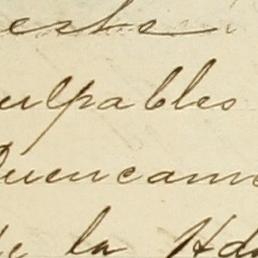 este
ulpables
uencame
de la Hda